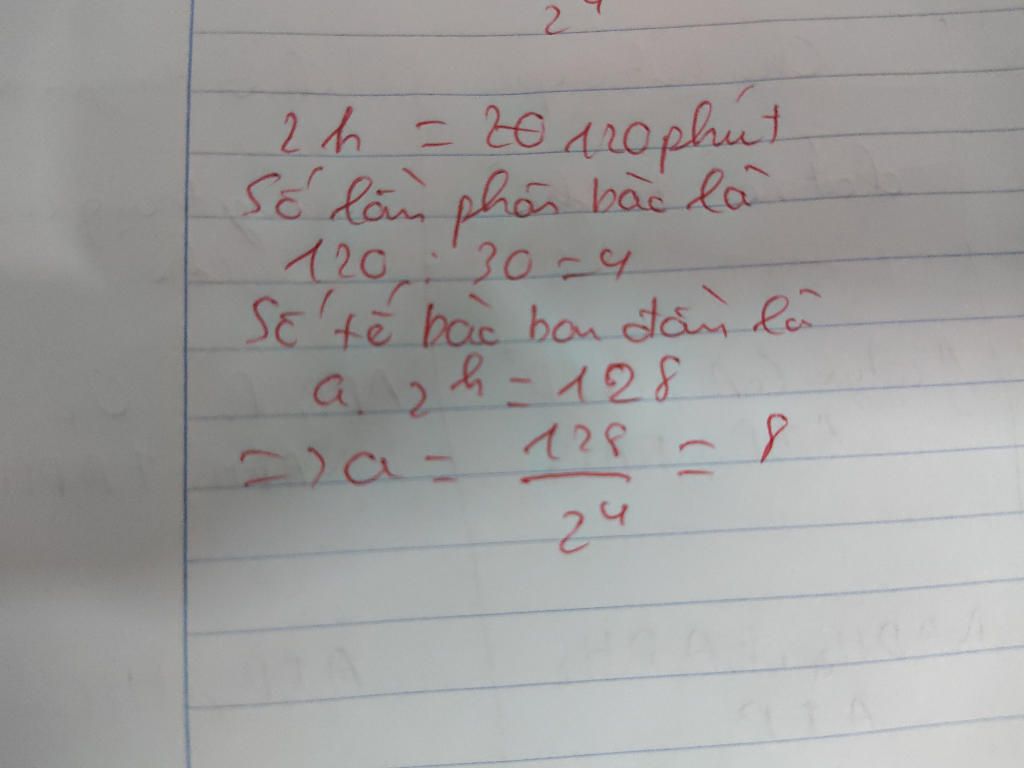 2⁴
2h = 20 120 phút
Số lần phân bào là
120 : 30 = 4
Số tế bào ban đầu là
a. 2ʰ = 128
=> a = 128/2⁴ = 8